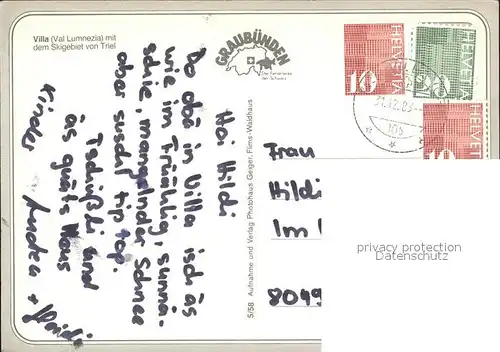 Villa (Val Lumnezia) mit
dem Skigebiet von Triel
GRAUBÜNDEN
Die Ferienecke
der Schweiz
Hoi Hildi
Do obä in Villa isch äs
wie im Früählig, sunnä-
schie, mangelnder Schnee
aber suscht tip top.
Tschüssli und
äs guäts Neus
Kinder
5/58 Aufnahme und Verlag Photohaus Geiger, Flims-Waldhaus
HELVETIA
10
HELVETIA
20
HELVETIA
10
31.12.83
Frau
Hildi
Im
8049
privacy protection
Datenschutz